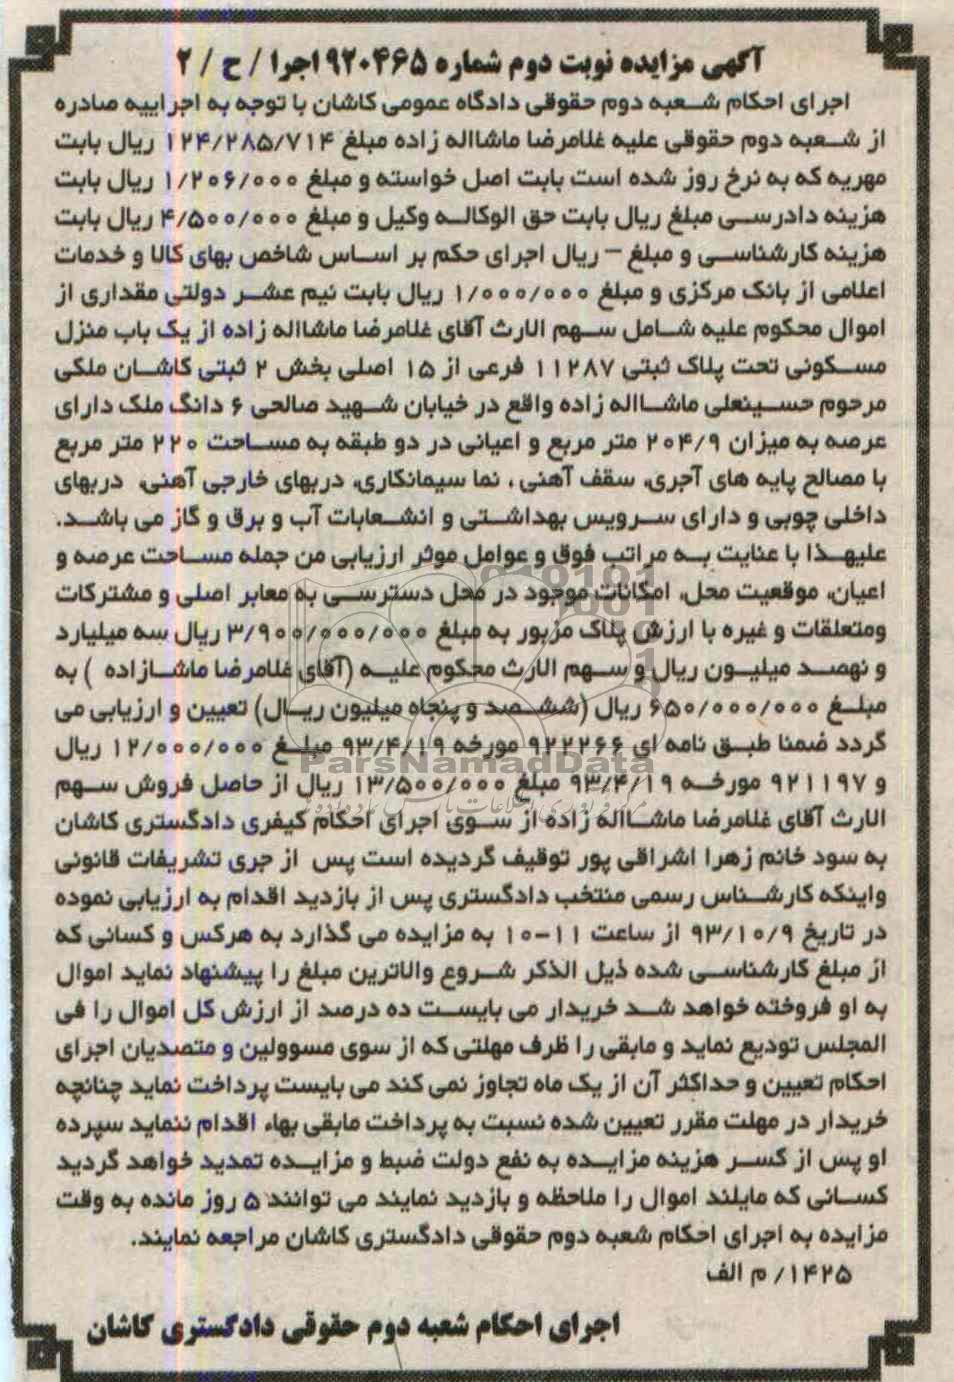 آگهی مزایده نوبت دوم شماره ۹۲۰۴۶۵ اجرا / ح / ۲
اجرای احکام شعبه دوم حقوقی دادگاه عمومی کاشان با توجه به اجراییه صادره
از شعبه دوم حقوقی علیه غلامرضا ماشااله زاده مبلغ ۱۲۴/۲۸۵/۷۱۴ ریال بابت
مهریه که به نرخ روز شده است بابت اصل خواسته و مبلغ ۱/۲۰۶/۰۰۰ ریال بابت
هزینه دادرسی مبلغ ریال بابت حق الوکاله وکیل و مبلغ ۴/۵۰۰/۰۰۰ ریال بابت
هزینه کارشناسی و مبلغ – ریال اجرای حکم بر اساس شاخص بهای کالا و خدمات
اعلامی از بانک مرکزی و مبلغ ۱/۰۰۰/۰۰۰ ریال بابت نیم عشر دولتی مقداری از
اموال محکوم علیه شامل سهم الارث آقای غلامرضا ماشااله زاده از یک باب منزل
مسکونی تحت پلاک ثبتی ۱۱۲۸۷ فرعی از ۱۵ اصلی بخش ۲ ثبتی کاشان ملکی
مرحوم حسینعلی ماشااله زاده واقع در خیابان شهید صالحی ۶ دانگ ملک دارای
عرصه به میزان ۲۰۴/۹ متر مربع و اعیانی در دو طبقه به مساحت ۲۲۰ متر مربع
با مصالح پایه های آجری، سقف آهنی ، نما سیمانکاری، دربهای خارجی آهنی، دربهای
داخلی چوبی و دارای سرویس بهداشتی و انشعابات آب و برق و گاز می باشد.
علیهذا با عنایت به مراتب فوق و عوامل موثر ارزیابی من جمله مساحت عرصه و
اعیان، موقعیت محل، امکانات موجود در محل دسترسی به معابر اصلی و مشترکات
ومتعلقات و غیره با ارزش پلاک مزبور به مبلغ ۳/۹۰۰/۰۰۰/۰۰۰ ریال سه میلیارد
و نهصد میلیون ریال و سهم الارث محکوم علیه (آقای غلامرضا ماشازاده ) به
مبلغ ۶۵۰/۰۰۰/۰۰۰ ریال (ششصد و پنجاه میلیون ریال) تعیین و ارزیابی می
گردد ضمنا طبق نامه ای ۹۲۲۲۶۶ مورخه ۹۳/۴/۱۹ مبلغ ۱۲/۰۰۰/۰۰۰ ریال
و ۹۲۱۱۹۷ مورخه ۹۳/۴/۱۹ مبلغ ۱۳/۵۰۰/۰۰۰ ریال از حاصل فروش سهم
الارث آقای غلامرضا ماشااله زاده از سوی اجرای احکام کیفری دادگستری کاشان
به سود خانم زهرا اشراقی پور توقیف گردیده است پس از جری تشریفات قانونی
واینکه کارشناس رسمی منتخب دادگستری پس از بازدید اقدام به ارزیابی نموده
در تاریخ ۹۳/۱۰/۹ از ساعت ۱۱-۱۰ به مزایده می گذارد به هرکس و کسانی که
از مبلغ کارشناسی شده ذیل الذکر شروع والاترین مبلغ را پیشنهاد نماید اموال
به او فروخته خواهد شد خریدار می بایست ده درصد از ارزش کل اموال را فی
المجلس تودیع نماید و مابقی را ظرف مهلتی که از سوی مسوولین و متصدیان اجرای
احکام تعیین و حداکثر آن از یک ماه تجاوز نمی کند می بایست پرداخت نماید چنانچه
خریدار در مهلت مقرر تعیین شده نسبت به پرداخت مابقی بهاء اقدام ننماید سپرده
او پس از کسر هزینه مزایده به نفع دولت ضبط و مزایده تمدید خواهد گردید
کسانی که مایلند اموال را ملاحظه و بازدید نمایند می توانند ۵ روز مانده به وقت
مزایده به اجرای احکام شعبه دوم حقوقی دادگستری کاشان مراجعه نمایند.
۱۴۲۵/ م الف
اجرای احکام شعبه دوم حقوقی دادگستری کاشان
ParsNamadData